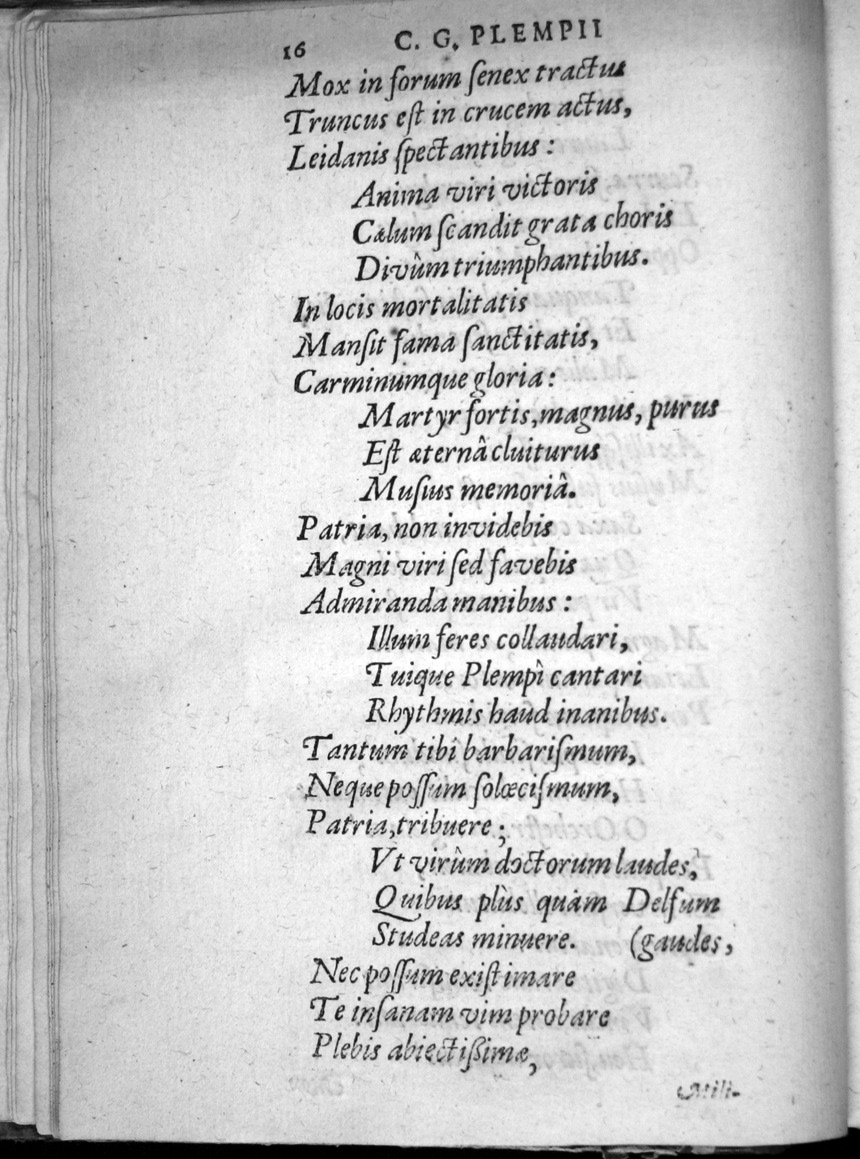 16 C. G. PLEMPII
Mox in forum ſenex tractus
Truncus eſt in crucem actus,
Leidanis ſpectantibus :
Anima viri victoris
Cælum ſcandit grata choris
Divûm triumphantibus.
In locis mortalitatis
Manſit fama ſanctitatis,
Carminumque gloria :
Martyr fortis, magnus, purus
Eſt æternâ cluiturus
Muſius memoriâ.
Patria, non invidebis
Magni viri ſed favebis
Admiranda manibus :
Illum feres collaudari,
Tuique Plempî cantari
Rhythmis haud inanibus.
Tantum tibi barbariſmum,
Neque poſſum ſolœciſmum,
Patria, tribuere ;
Vt virûm doctorum laudes,
Quibus plùs quàm Delfum
Studeas minuere. (gaudes,
Nec poſſum exiſtimare
Te inſanam vim probare
Plebis abiectißimæ,
Mili-